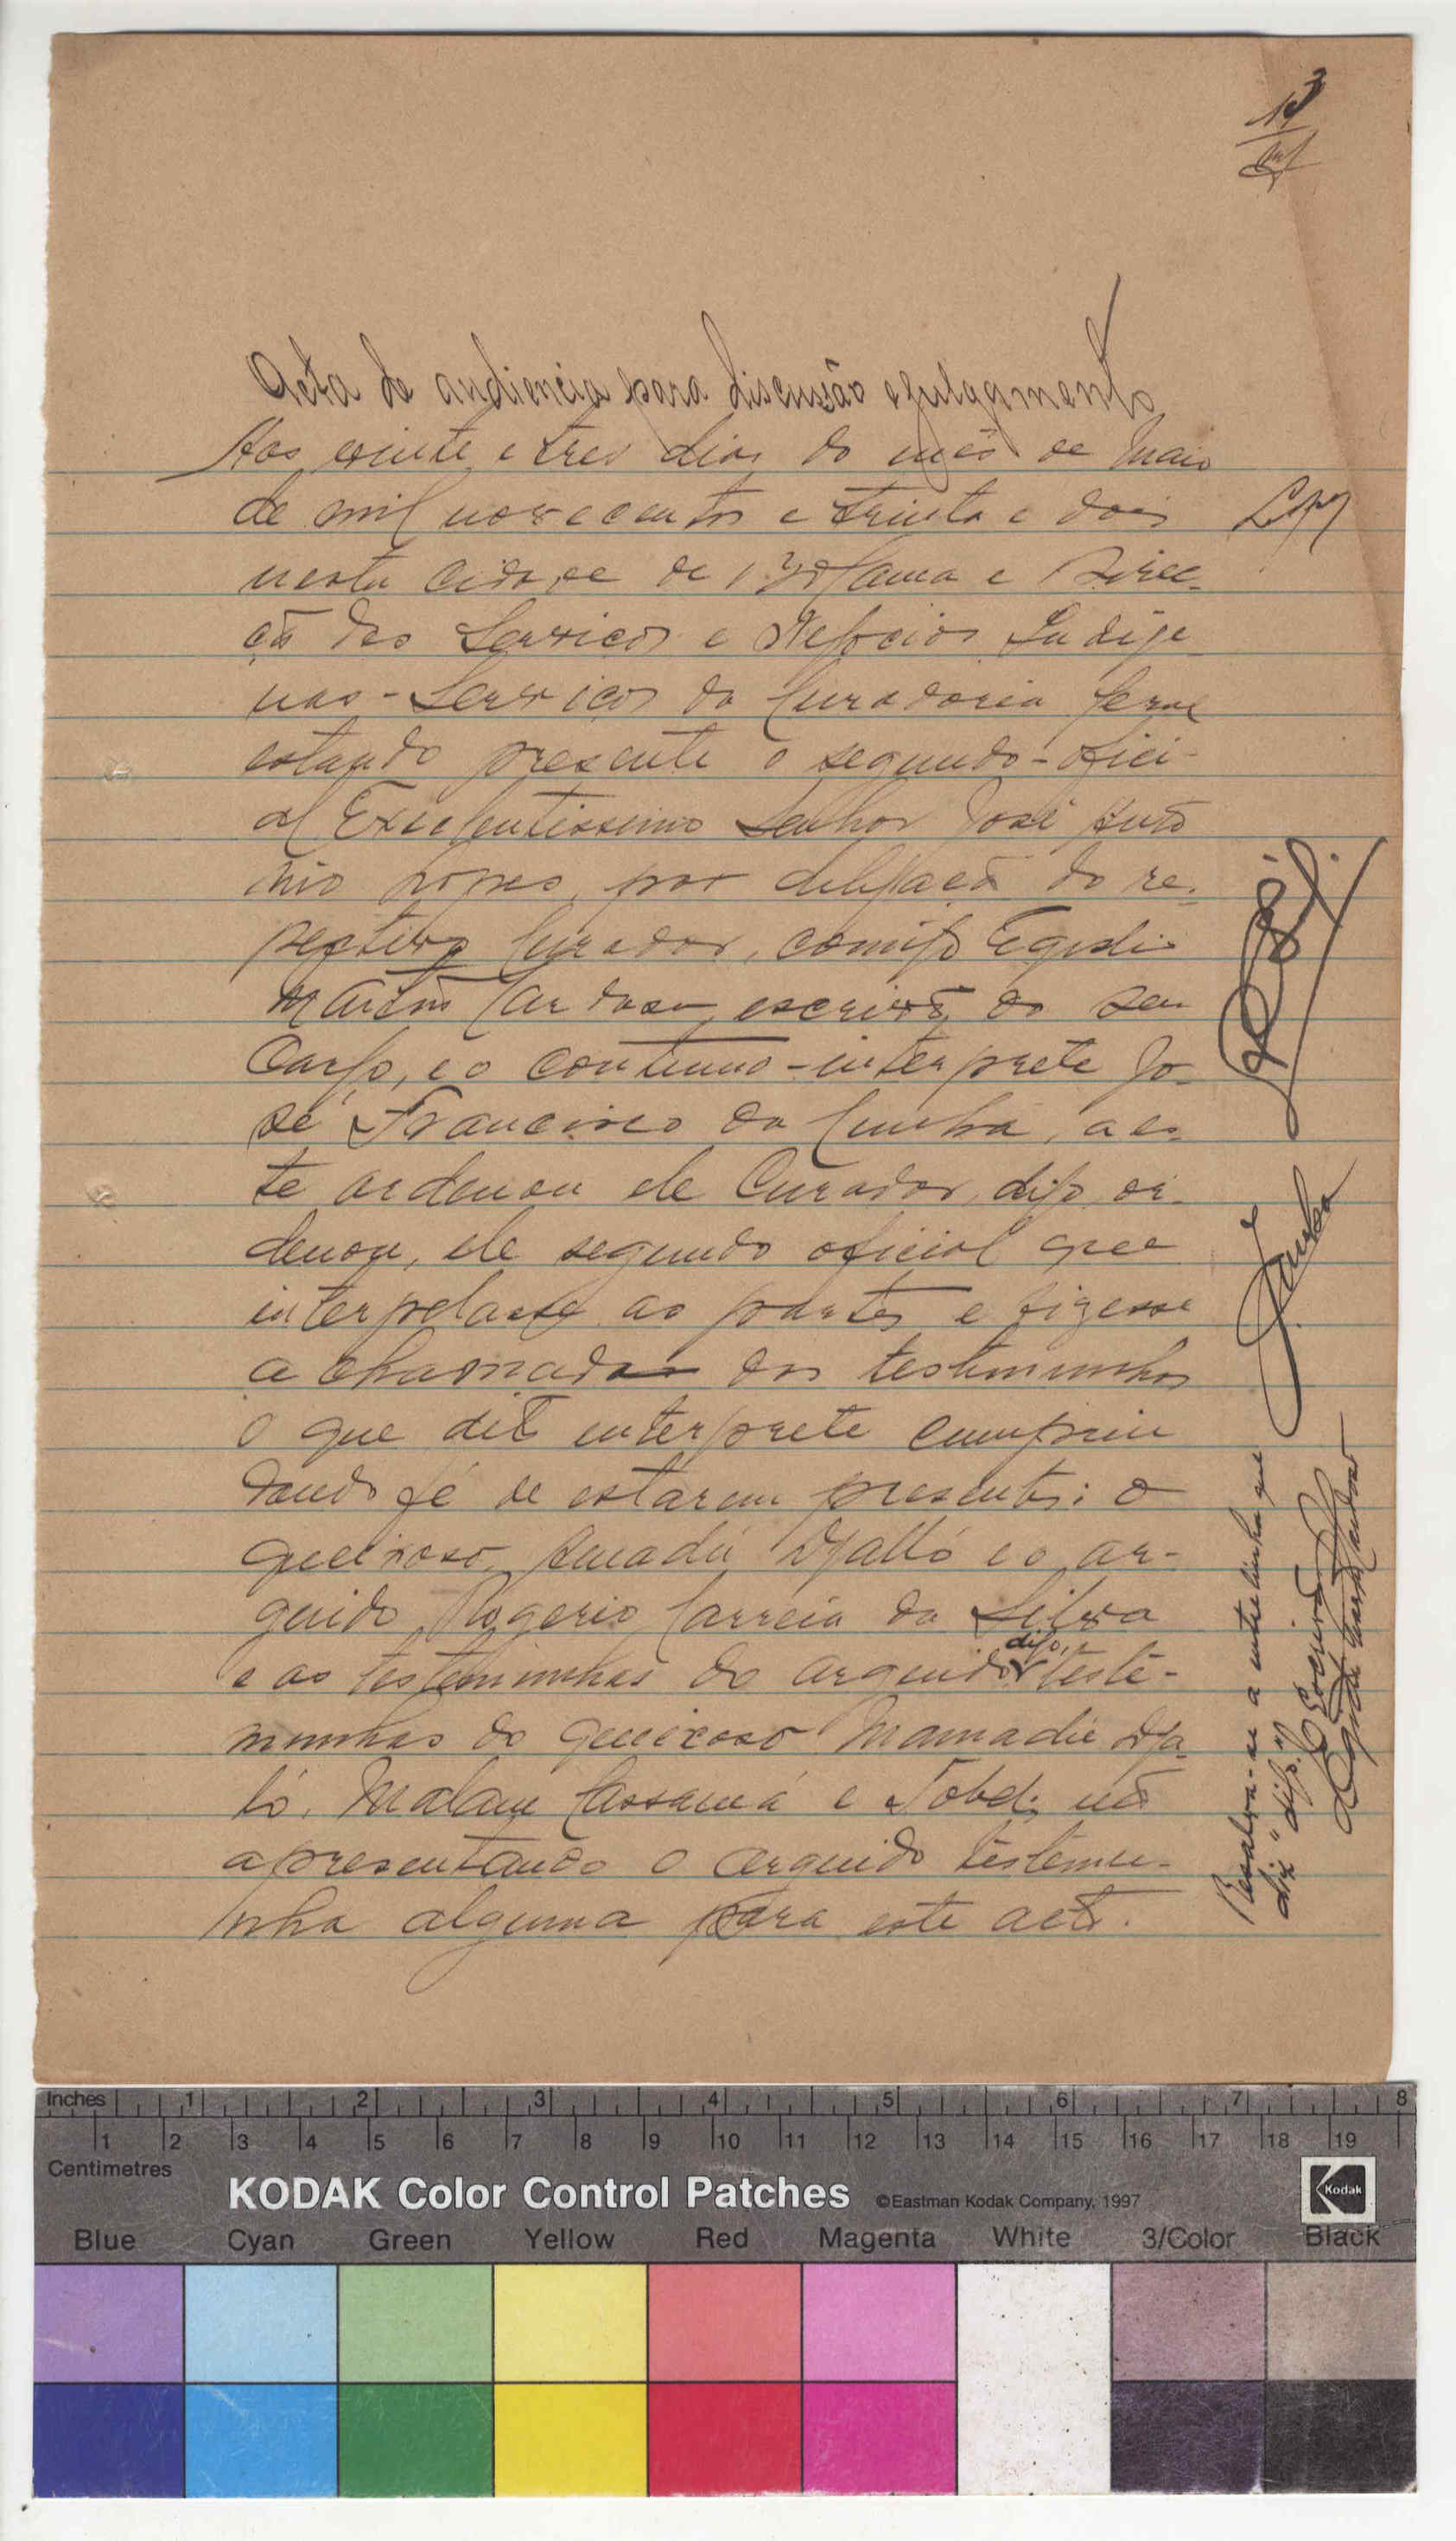 13
Acta de audiencia para discussão e julgamento
Aos vinte e tres dias do mês de Maio
de mil novecentos e trinta e dois
nesta cidade de Bolama e Direc-
ção dos Serviços e Negocios Indige
nas - Serviços da Curadoria Geral
estando presente o segundo-ofici-
al Excelentissimo Senhor José Antó
nio Lopes, por delegação do re.
pectivo Curador, comigo Egidio
Martins Cardoso, escrivão do seu
Cargo, e o continuo-interprete Jo-
sé Francisco da Cunha, a es-
te ordenou ele Curador, digo or-
denou, ele segundo oficial que
interpelasse as partes e fizesse
a chamada das testimunhas
o que dito interprete cumpriu
dando fé de estarem presentes: o
queixoso, Amadú Djaló e o ar-
guido Rogerio Correia da Silva
e as testemunhas do arguido digo, teste-
munhas do queixoso Mamadú Dja
ló, Malam Cassamá e não
apresentando o arguido testemu-
nha alguma para este acto.
Cunha
Ressalva-se a entrelinha que
diz "digo." O Escrivão
Egidio Cardoso
Inches 1 2 3 4 5 6 7 8
Centimetres 1 2 3 4 5 6 7 8 9 10 11 12 13 14 15 16 17 18 19
KODAK Color Control Patches ©Eastman Kodak Company, 1997 Kodak
Blue Cyan Green Yellow Red Magenta White 3/Color Black